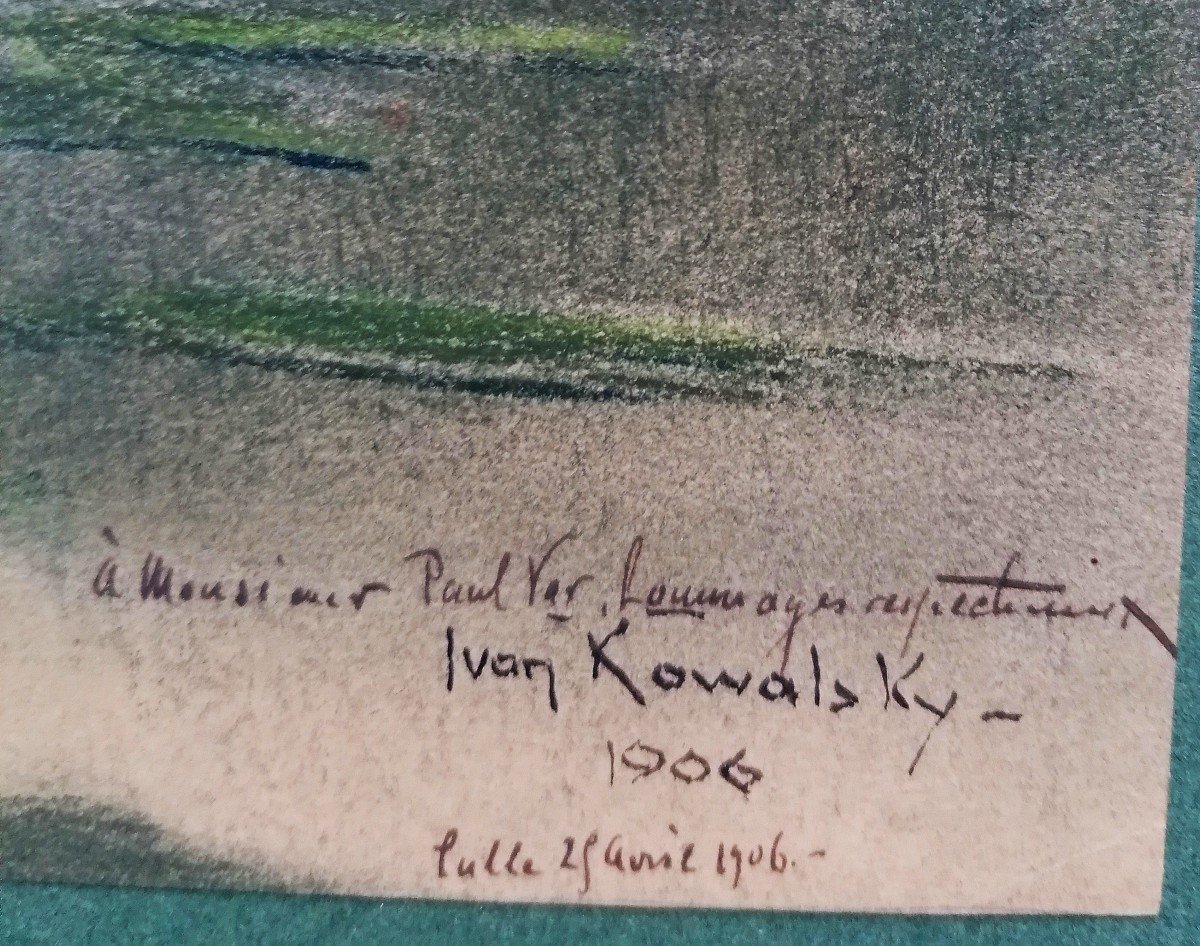 à Monsieur Paul Ver. hommages respectueux
Ivan Kowalsky -
1906
Tulle 25 Avril 1906.-